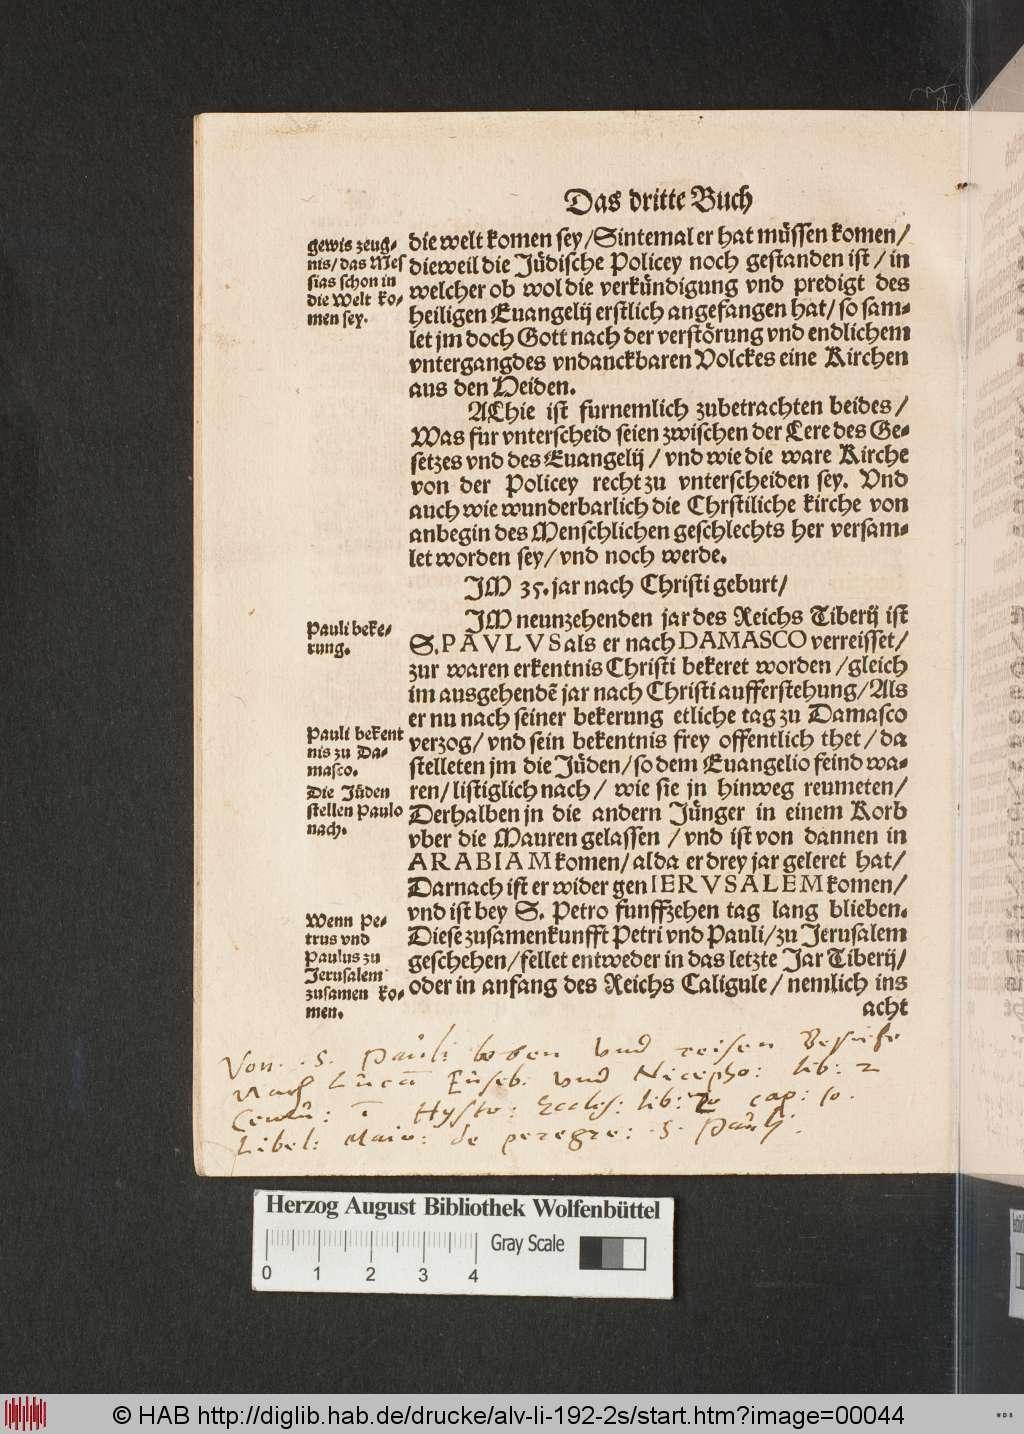 Das dritte Buch
gewis zeug-
nis/das Mes
sias schon in
die Welt ko-
men sey.
die welt komen sey/Sintemal er hat müssen komen/
dieweil die Jüdische Policey noch gestanden ist/in
welcher ob wol die verkündigung vnd predigt des
heiligen Euangelij erstlich angefangen hat/so sam-
let jm doch Gott nach der verstörung vnd endlichem
vntergangdes vndanckbaren Volckes eine Kirchen
aus den Heiden.
ALhie ist furnemlich zubetrachten beides/
Was fur vnterscheid seien zwischen der Lere des Ge-
setzes vnd des Euangelij/vnd wie die ware Kirche
von der Policey recht zu vnterscheiden sey. Vnd
auch wie wunderbarlich die Chrstiliche kirche von
anbegin des Menschlichen geschlechts her versam-
let worden sey/vnd noch werde.
JM 35. jar nach Christi geburt/
Pauli beke-
rung.
JM neunzehenden jar des Reichs Tiberij ist
S. PAVLVS als er nach DAMASCO verreisset/
zur waren erkentnis Christi bekeret worden/gleich
im ausgehendē jar nach Christi aufferstehung/Als
er nu nach seiner bekerung etliche tag zu Damasco
Pauli bekent
nis zu Da-
masco.
verzog/vnd sein bekentnis frey offentlich thet/da
stelleten jm die Jüden/so dem Euangelio feind wa-
Die Jüden
stellen Paulo
nach.
ren/listiglich nach/wie sie jn hinweg reumeten/
Derhalben jn die andern Jünger in einem Korb
vber die Mauren gelassen/vnd ist von dannen in
ARABIAM komen/alda er drey jar geleret hat/
Darnach ist er wider gen IERVSALEM komen/
Wenn Pe-
trus vnd
Paulus zu
Jerusalem
zusamen ko-
men.
vnd ist bey S. Petro funffzehen tag lang blieben.
Diese zusamenkunfft Petri vnd Pauli/zu Jerusalem
geschehen/fellet entweder in das letzte Jar Tiberij/
oder in anfang des Reichs Caligule/nemlich ins
acht
Von .S. Pauli leben vnd reisen
Nach Lucā Euseb: vnd Nicepho: lib: 2
Hysto: Eccles: lib: cap: 10.
Libel: de peregre: .S. Pauli.
Herzog August Bibliothek Wolfenbüttel
Gray Scale
0 1 2 3 4
© HAB http://diglib.hab.de/drucke/alv-li-192-2s/start.htm?image=00044